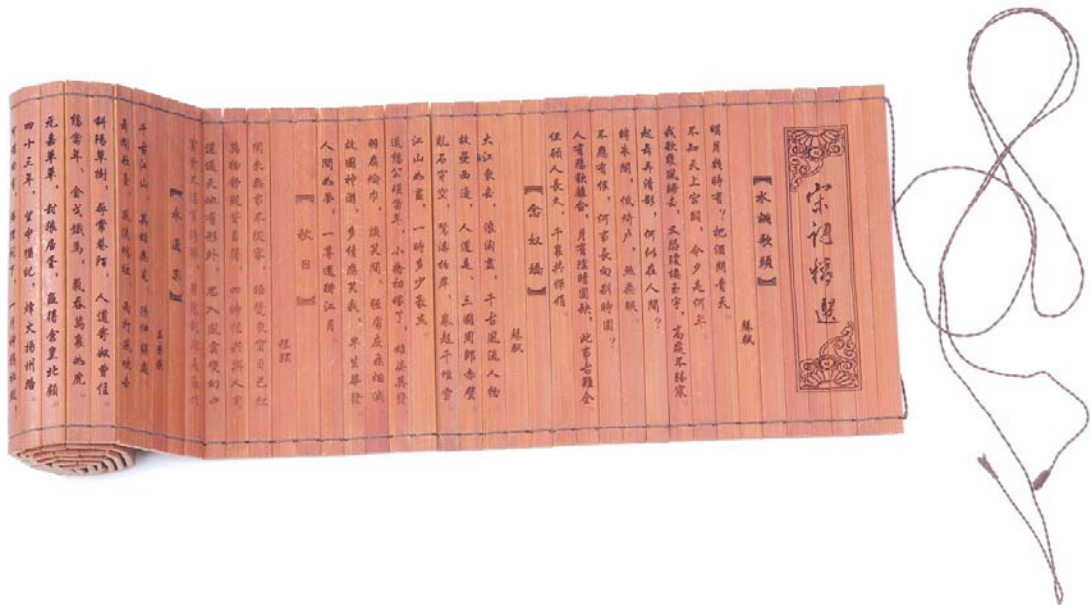 宋词精選
【水調歌頭】
蘇軾
明月幾時有？把酒問青天。
不知天上宮闕，今夕是何年
我欲乘風歸去，又恐瓊樓玉宇，高處不勝寒
起舞弄清影，何似在人間？
轉朱閣，低綺户，照無眠。
不應有恨，何事長向别時圓？
人有悲歡離合，月有陰晴圓缺，此事古難全。
但願人長久，千里共嬋娟。
【念奴嬌】
蘇軾
大江東去，浪淘盡，千古風流人物
故壘西邊，人道是，三國周郎赤壁
亂石穿空，驚濤拍岸，卷起千堆雪
江山如畫，一時多少豪杰。
遥想公瑾當年，小喬初嫁了，雄姿英發
羽扇綸巾，談笑間，强虜灰飛烟滅
故國神游，多情應笑我，早生華發
人間如夢，一尊還酹江月
【秋日】
程颢
閑來無事不從容，睡覺東窗日已紅
萬物静觀皆自得，四時佳興與人同
道通天地有形外，思入風雲變幻中
【永遇樂】
千古江山，英雄無覓，孫仲謀處
舞榭歌臺，風流總被，雨打風吹去
斜陽草樹，尋常巷陌，人道寄奴曾住。
想當年，金戈鐵馬，氣吞萬里如虎。
元嘉草草，封狼居胥，贏得倉皇北顧。
四十三年，望中猶記，烽火揚州路。